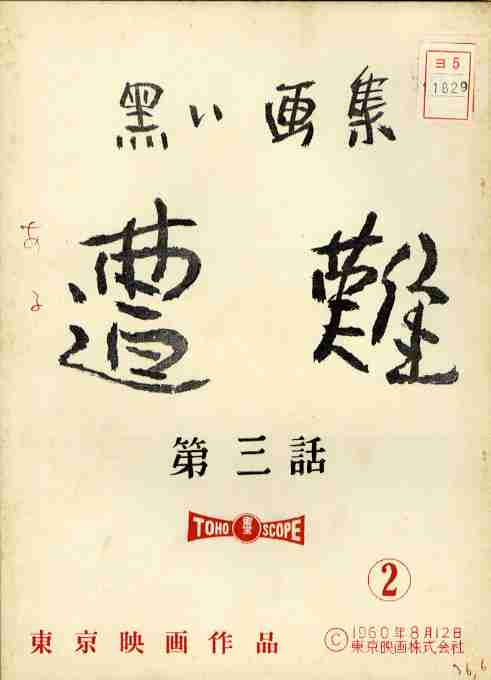 ヨ5
1829
黒い画集
ある
遭難
第三話
TOHO SCOPE
2
東京映画作品
© 1960年8月12日
東京映画株式会社